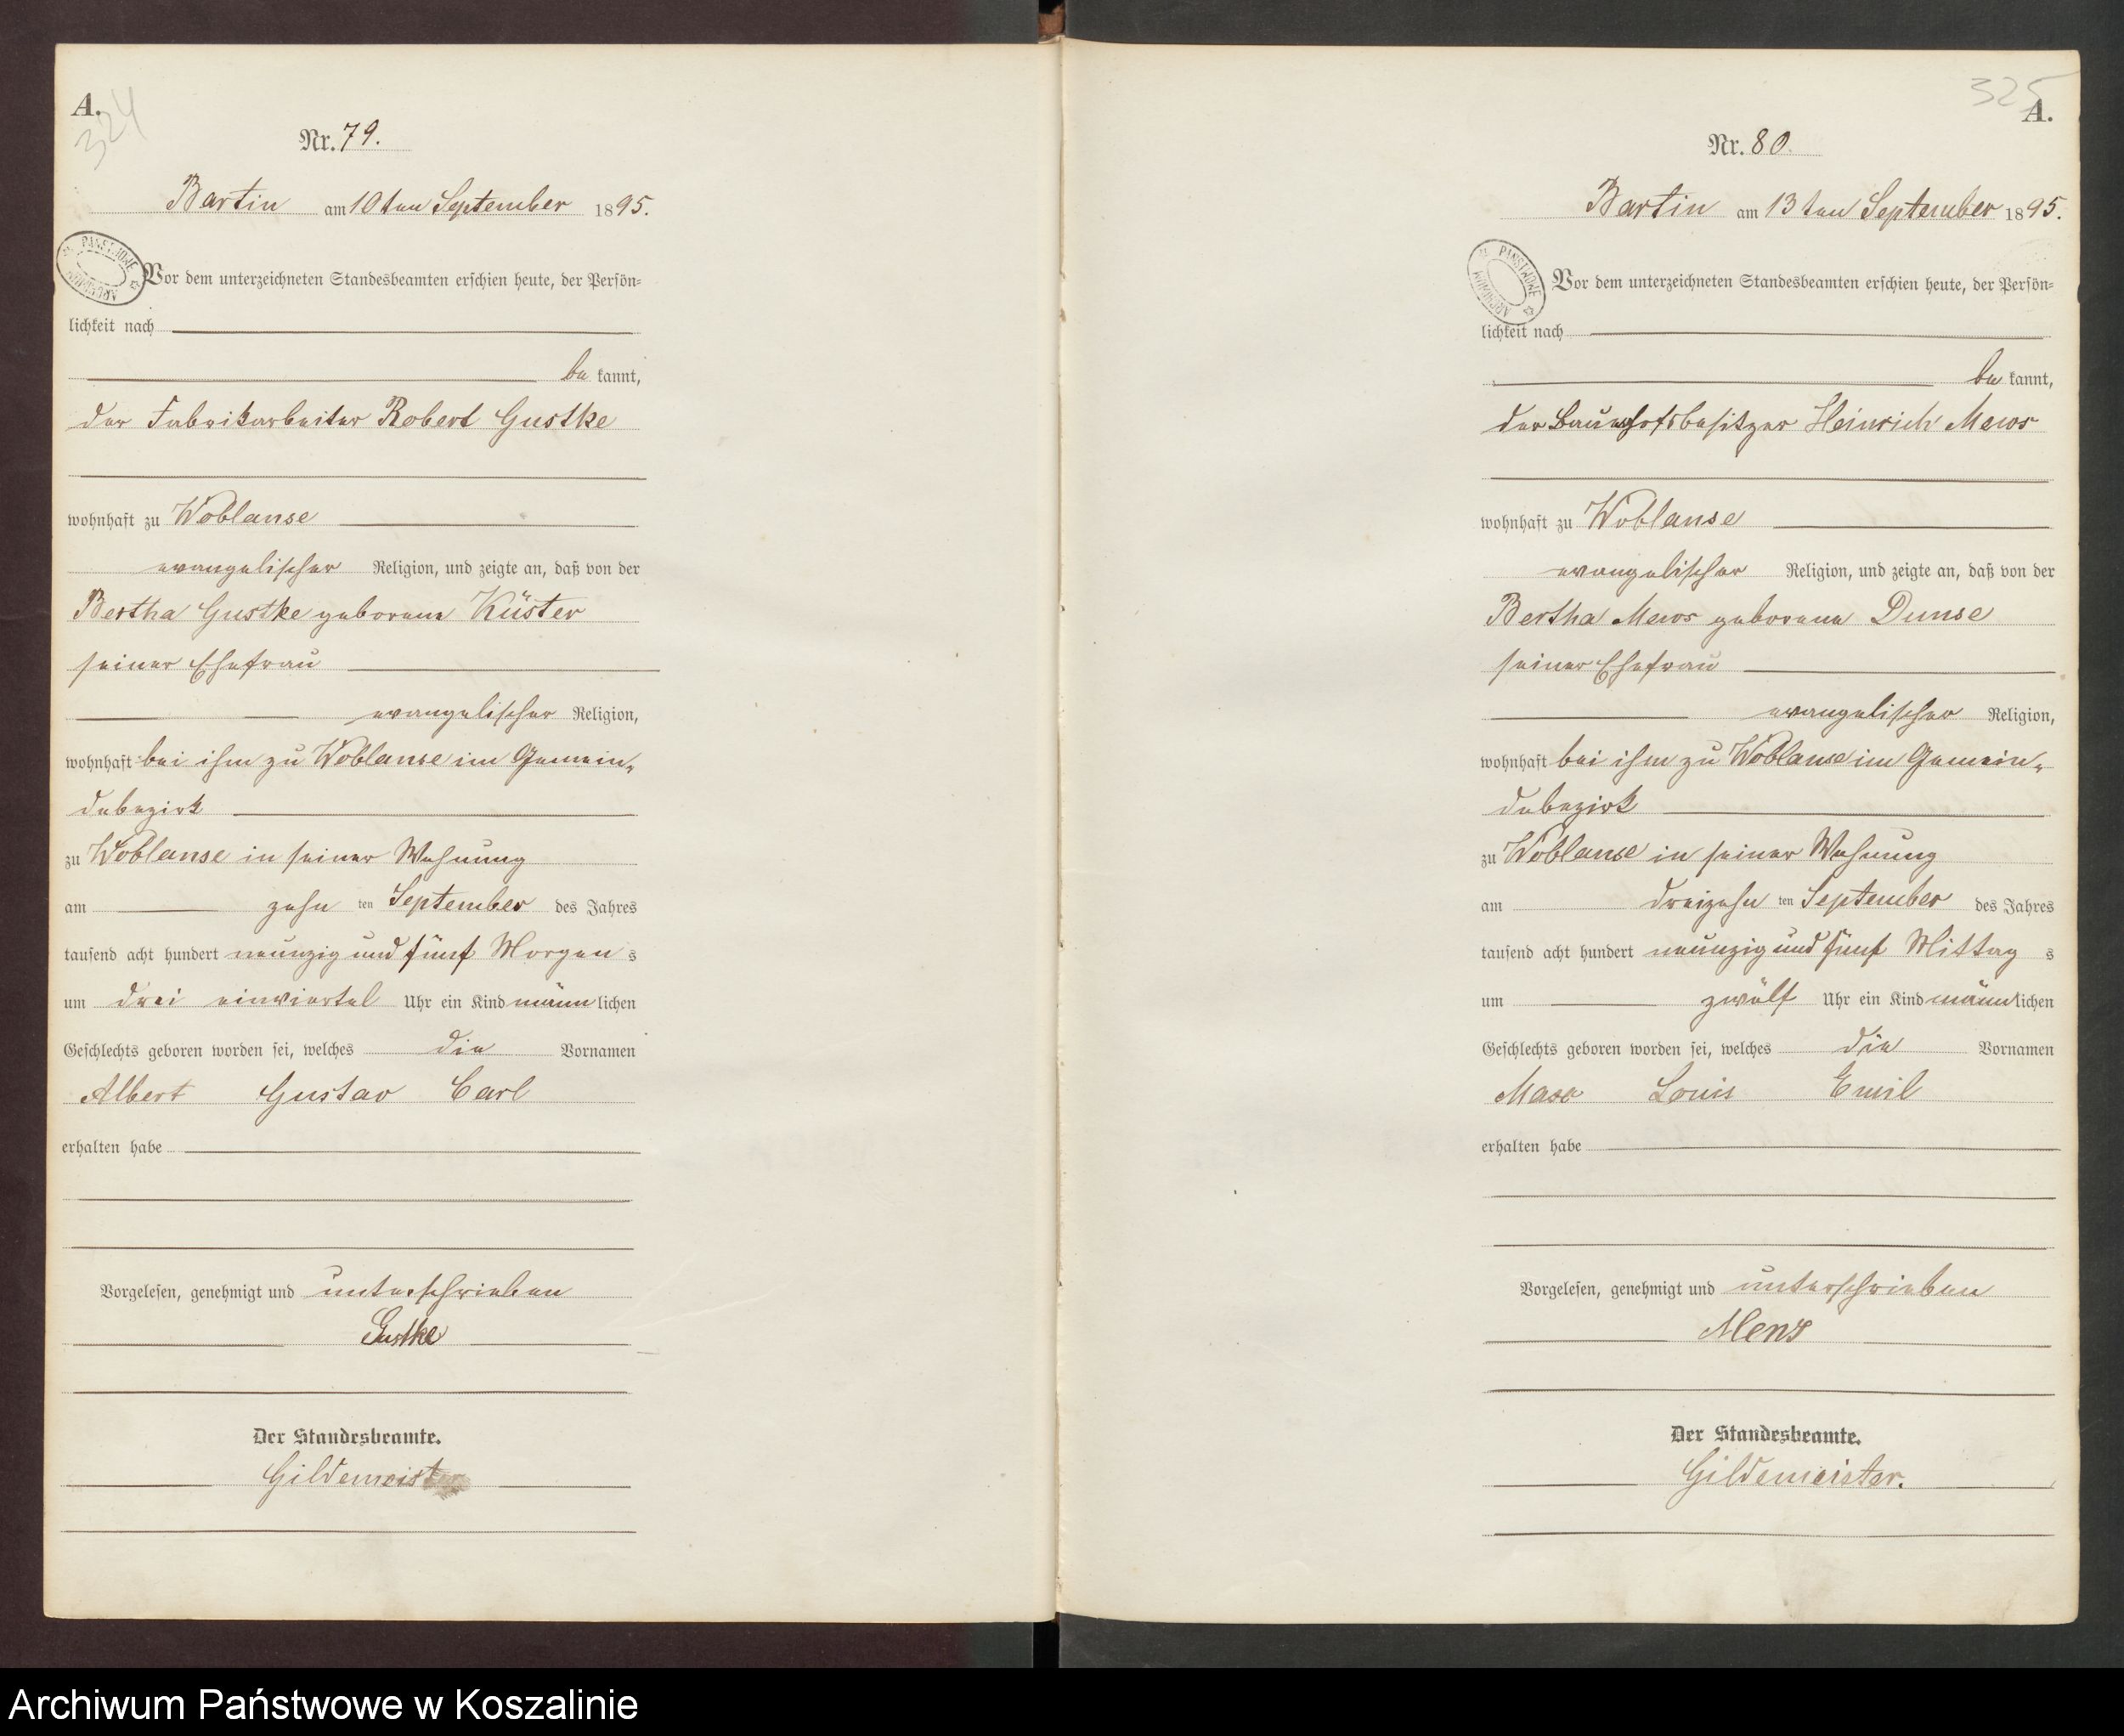 A.
324
Nr. 79.
Bartin am 10ten September 1895.
Vor dem unterzeichneten Standesbeamten erschien heute, der Persön-
lichkeit nach
be kannt,
der Fabrikarbeiter Robert Gustke
wohnhaft zu Woblanse
evangelischer Religion, und zeigte an, daß von der
Bertha Gustke geborene Küster
seiner Ehefrau
evangelischer Religion,
wohnhaft bei ihm zu Woblanse im Gemein-
debezirk
zu Woblanse in seiner Wohnung
am zehn ten September des Jahres
tausend acht hundert neunzig und fünf Morgen s
um drei einviertel Uhr ein Kind männ lichen
Geschlechts geboren worden sei, welches die Vornamen
Albert Gustav Carl
erhalten habe
Vorgelesen, genehmigt und unterschrieben
Gustke
Der Standesbeamte.
Gildemeister
325
A.
Nr. 80.
Bartin am 13ten September 1895.
PANSTWOWE ARCHIWUM
Vor dem unterzeichneten Standesbeamten erschien heute, der Persön-
lichkeit nach
be kannt,
der Bauerhofsbesitzer Heinrich Mews
wohnhaft zu Woblanse
evangelischer Religion, und zeigte an, daß von der
Bertha Mews geborene Dunse
seiner Ehefrau
evangelischer Religion,
wohnhaft bei ihm zu Woblanse im Gemein-
debezirk
zu Woblanse in seiner Wohnung
am dreizehn ten September des Jahres
tausend acht hundert neunzig und fünf Mittag s
um zwölf Uhr ein Kind männ lichen
Geschlechts geboren worden sei, welches die Vornamen
Max Louis Emil
erhalten habe
Vorgelesen, genehmigt und unterschrieben
Mews
Der Standesbeamte.
Gildemeister.
Archiwum Państwowe w Koszalinie